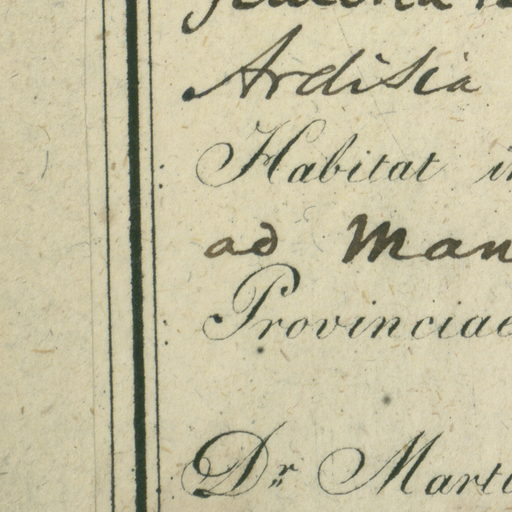 Ardisia
Habitat in
ad Man
Provinciae
Dr. Marti